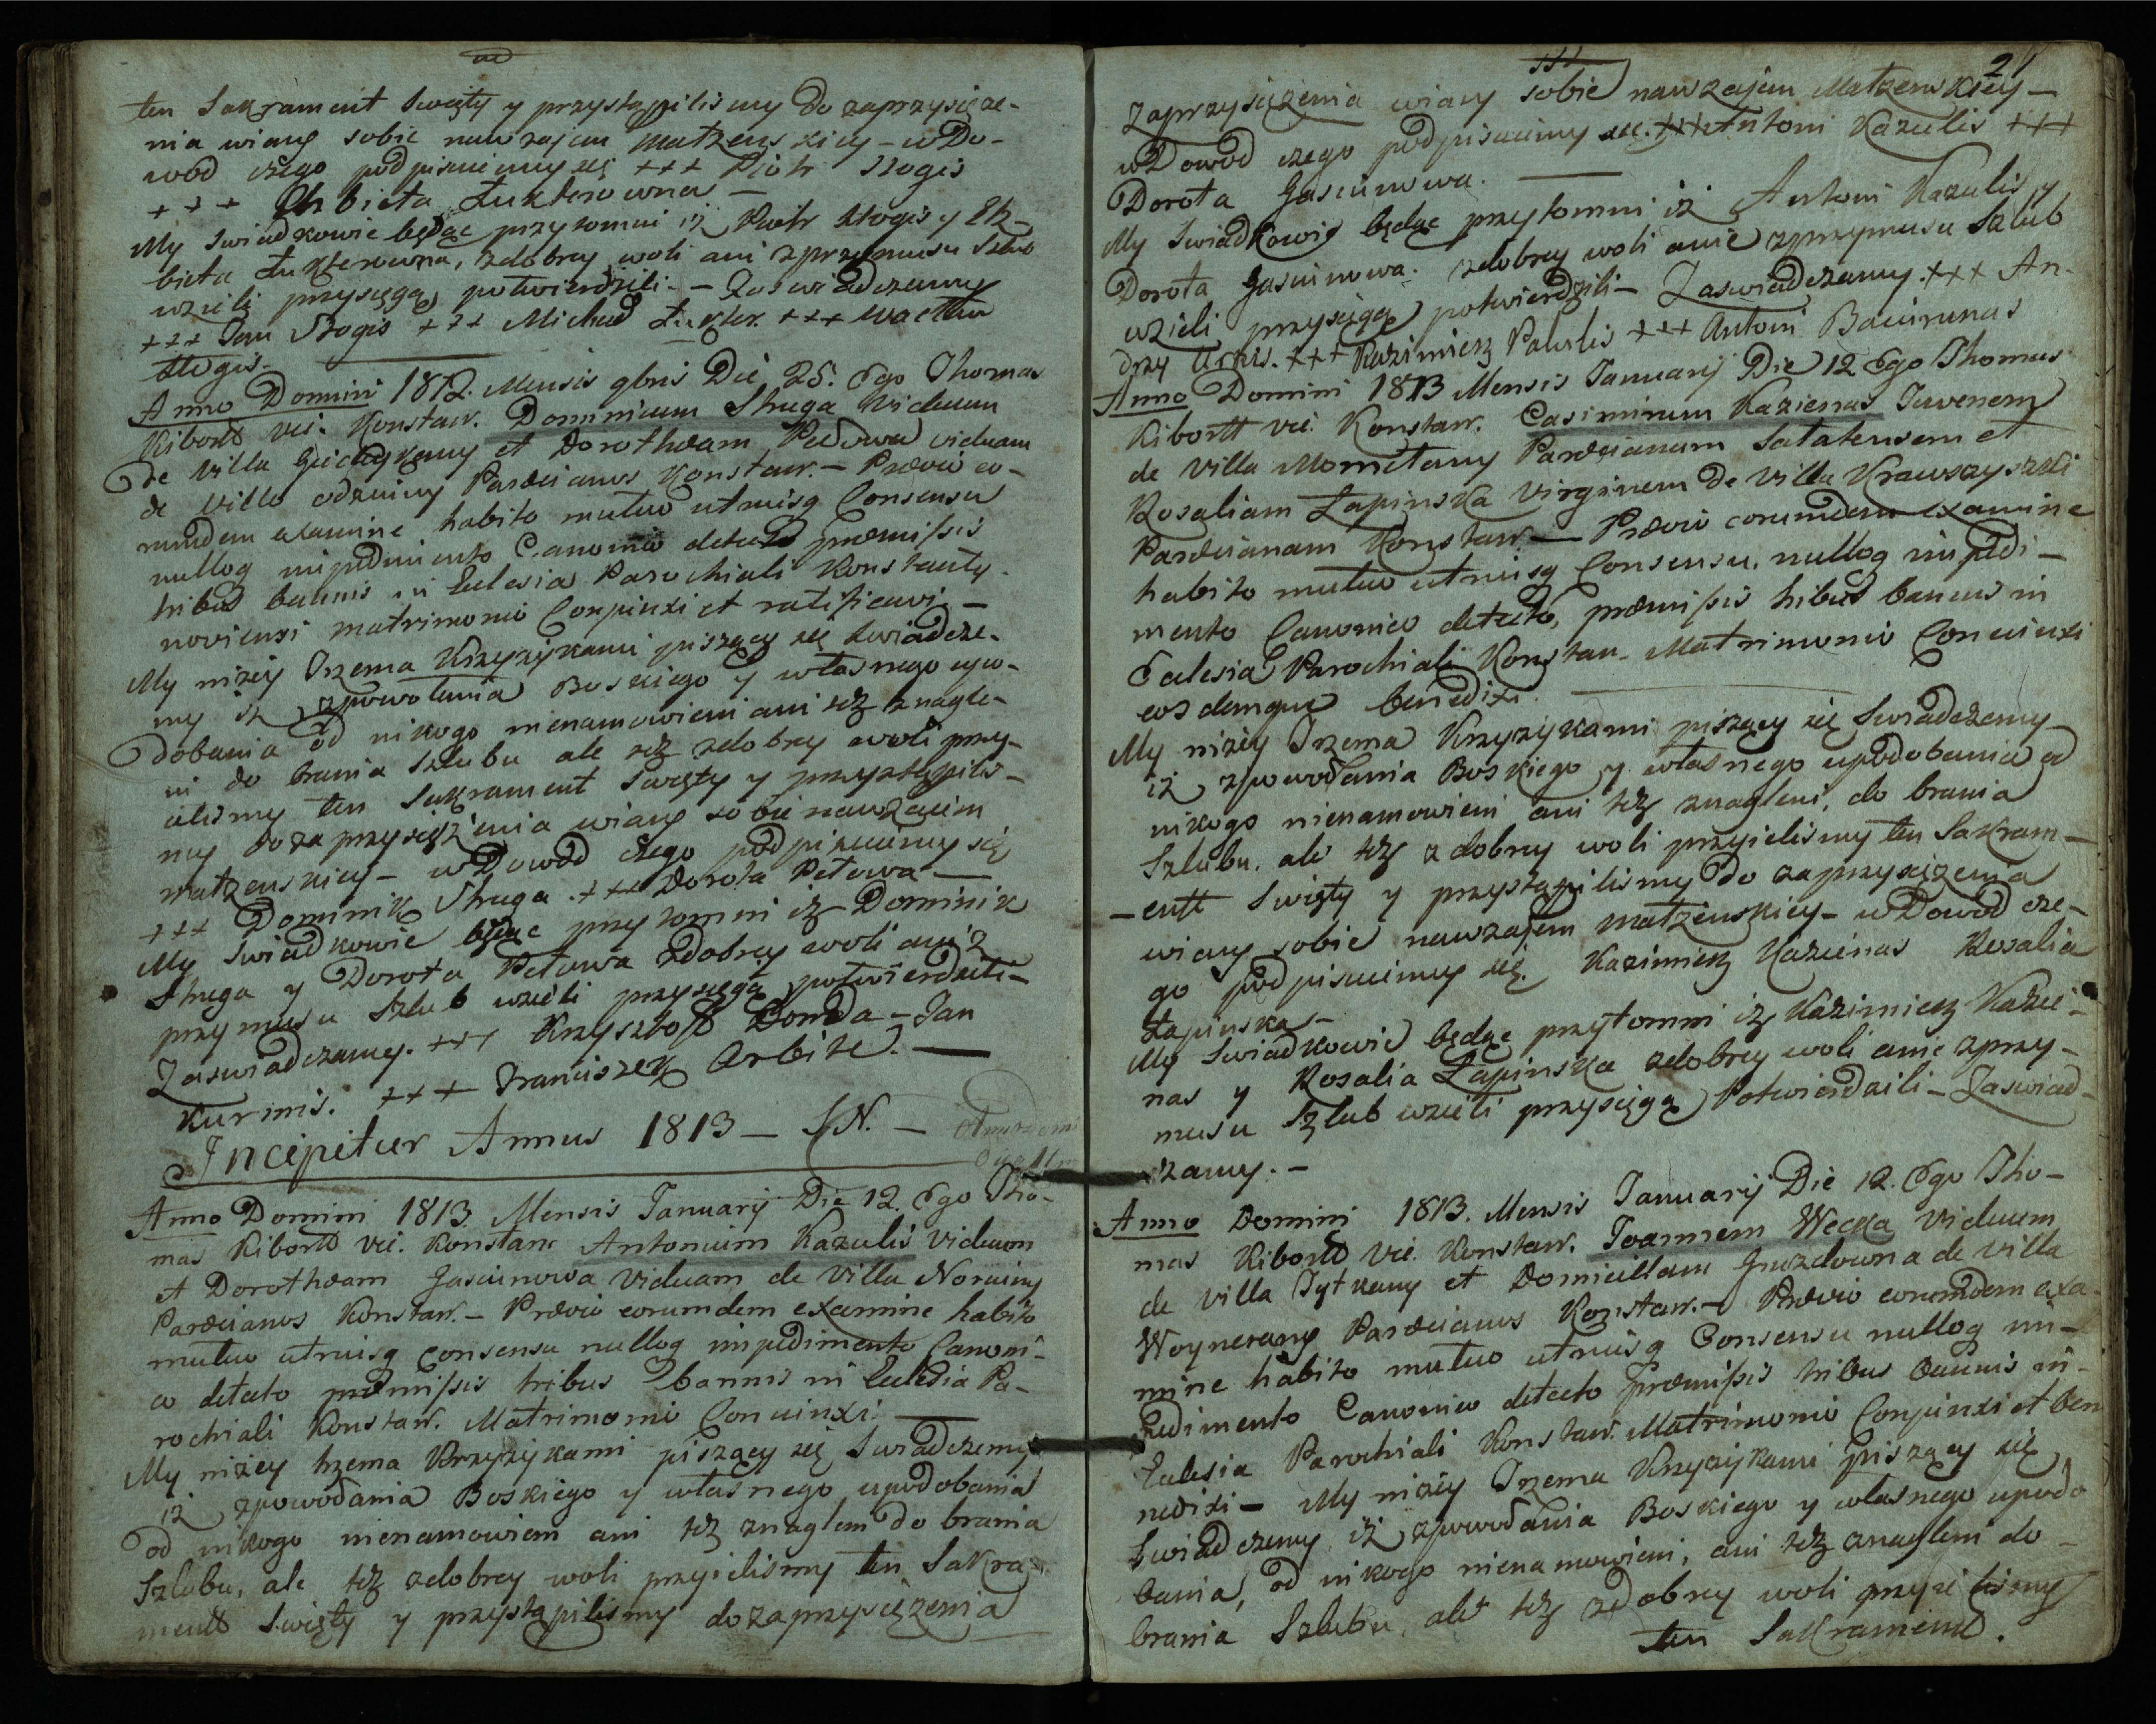 ten Sakrament Swięty y przystąpilismy Do zaprzysięże-
nia wiary sobie nawzajem Małzenskiey – w Do-
wod czego podpisuiemy się +++ Piotr Stogis
+++ Elzbieta Łukterowna –
My Swiadkowie będąc przytomni iż Piotr Stogis y Elz-
bieta Łukterowna, zdobrey woli ani zprzymusu Szlub
wzieli przysięgą potwierdzili – Zaswiadczamy
+++ Jan Stogis +++ Michał Łukter. +++ Wacław
Stogis.
Anno Domini 1812. Mensis 9bris Die 25. Ego Thomas
Kibortt vic. Konstan. Dominicum Struga Viduum
De Villa et Dorotheam Petowa viduam
de Villa Parocianos Konstan. – Prævio eo-
rumdem examine habito mutuo utriusq Consensu
nulloq impedimento Canonico detecto præmissis
tribus bannis in Eclesia Parochiali Konstanty-
noviensi matrimonio Conjunxi et ratificavi –
My niżey Trzema Krzyżykami piszący się Swiadcze-
my iż zpowołania Boskiego y własnego upo-
dobania od nikogo nienamowieni ani też znagle-
ni do brania Szlubu ale też zdobrey woli przy-
ielismy ten Sakrament Swięty y przystąpilis-
my do zaprzysiężenia wiary sobie nawzaiem
małzenskiey – w Dowod czego podpisuiemy się
+++ Dominik Struga. +++ Dorota Petowa –
My Swiadkowie będąc przytomni iż Dominik
Struga y Dorota Petowa zdobrey woli ani z
przymusu Szlub wzieli przysięgą potwierdzili –
Zaswiadczamy. +++ Krzysztoff Donda – Jan
Kurimis. +++ Franciszek Arbite. –
Incipitur Annus 1813 – S.N. –
Anno Domini 1813. Mensis Januarij Die 12. Ego Tho-
mas Kibortt vic. Konstan Antonium Kazulis Viduum
et Dorotheam Gasiunowa Viduam de Villa Noruiny
Parocianos Konstan. – Prævio eorumdem examine habito
mutuo utriusq consensu nulloq impedimento Canoni-
co detecto præmissis tribus bannis in Eclesia Pa-
rochiali Konstan. Matrimonio Conuinxi. –
My niżey trzema Krzyżykami piszący się Swiadczemy
iż zpowodania Boskiego y własnego upodobania
od nikogo nienamowieni ani też znagleni do brania
Szlubu, ale też zdobrey woli przyielismy ten Sakra-
mentt Swięty y przystąpilismy do zaprzysiężenia
21
zaprzysiężenia wiary sobie nawzajem Małzenskiey –
w Dowod czego podpisuiemy się. +++ Antoni Kazulis +++
Dorota Gasiunowa. –
My Swiadkowie będąc przytomni iż Antoni Kazulis y
Dorota Gasiunowa. zdobrey woli anie zprzymusu Szlub
wzieli przysięgą potwierdzili – Zaswiadczamy. +++ An-
drzy Urkis. +++ Kazimierz Palulis +++ Antoni Baciunas
Anno Domini 1813 Mensis Januarij Die 12 Ego Thomas
Kibortt vic. Konstan. Casimirum Kazienas Juvenem
de Villa Mometany Parocianum Salatensem et
Rosaliam Łapinska Virginem de Villa Krawszyszki
Parocianam Konstan – Prævio eorumdem examine
habito mutuo utriusq Consensu, nulloq impedi-
mento Canonico detecto, præmissis tribus bannis in
Eclesia Parochiali Konstan. Matrimonio Conuinxi
eosdemque benedixi.
My niżey Trzema Krzyżykami piszący się Swiadczemy
iż zpowodania Boskiego y własnego upodobania od
nikogo nienamowieni ani też znagleni, do brania
Szlubu. ale też z dobrey woli przyielismy ten Sakram-
– entt Swięty y przystąpilismy do zaprzysiężenia
wiary sobie nawzajem małżenskiey – w Dowod cze-
go podpisuiemy się. Kazimierz Kazienas Rosalia
Łapinska –
My Swiadkowie będąc przytomni iż Kazimierz Kazie-
nas y Rosalia Łapinska zdobrey woli anie zprzy-
musu Szlub wzieli przysięgą Potwierdzili – Zaswiad-
czamy. –
Anno Domini 1813. Mensis Januarij Die 12. Ego Tho-
mas Kibortt vic. Konstan. Joannem Wecka Viduum
de Villa Tytkany et Domicellam Gruzdowna de Villa
Woynerany Parocianos Konstan. – Prævio eorumdem exa-
mine habito mutuo utriusq Consensu nulloq im-
pedimento Canonico detecto præmissis tribus bannis in
Eclesia Parochiali Konstan. Matrimonio Conjunxi et be-
nedixi – My niżey Trzema Krzyżykami piszący się
Swiadczemy iż zpowodania Boskiego y własnego upodo
bania, od nikogo nienamowieni, ani też znagleni do –
brania Szlubu, ale też zdobrey woli przyielismy
ten Sakramentt.